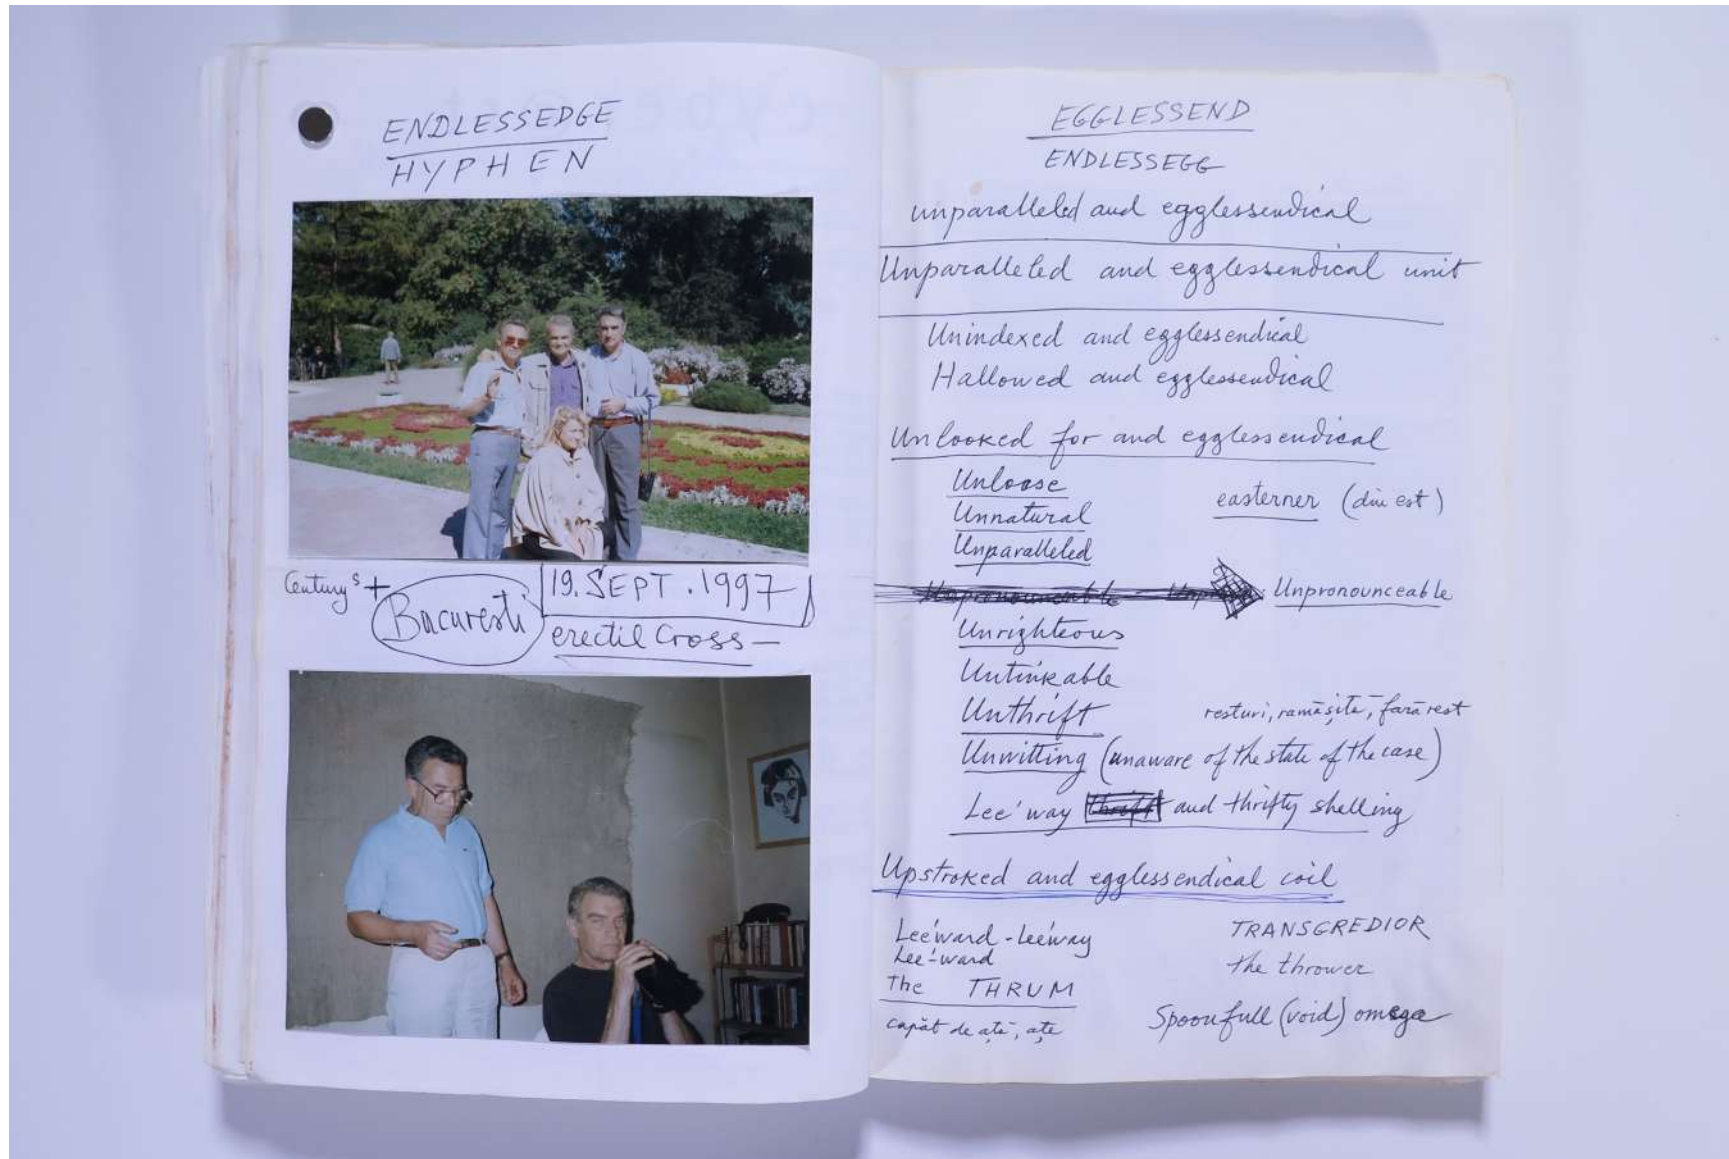 ENDLESSEDGE
HYPHEN
Century s +
Bucuresti
19. SEPT. 1997
erectil Cross —
EGGLESSEND
ENDLESSEGG
unparalleled and egglessendical
Unparalleled and egglessendical unit
Unindexed and egglessendical
Hallowed and egglessendical
Unlooked for and egglessendical
Unloose
Unnatural
easterner (din est)
Unparalleled
Unpronounceable
Unrighteous
Untinkable
Unthrift resturi, rămășită, fară rest
Unwitting (unaware of the state of the case)
Lee'way thrift and thrifty shelling
Upstroked and egglessendical coil
Lee'ward - lee'way
Lee'-ward
The THRUM
capăt de ață, ațe
TRANSGREDIOR
the thrower
Spoonfull (void) omega